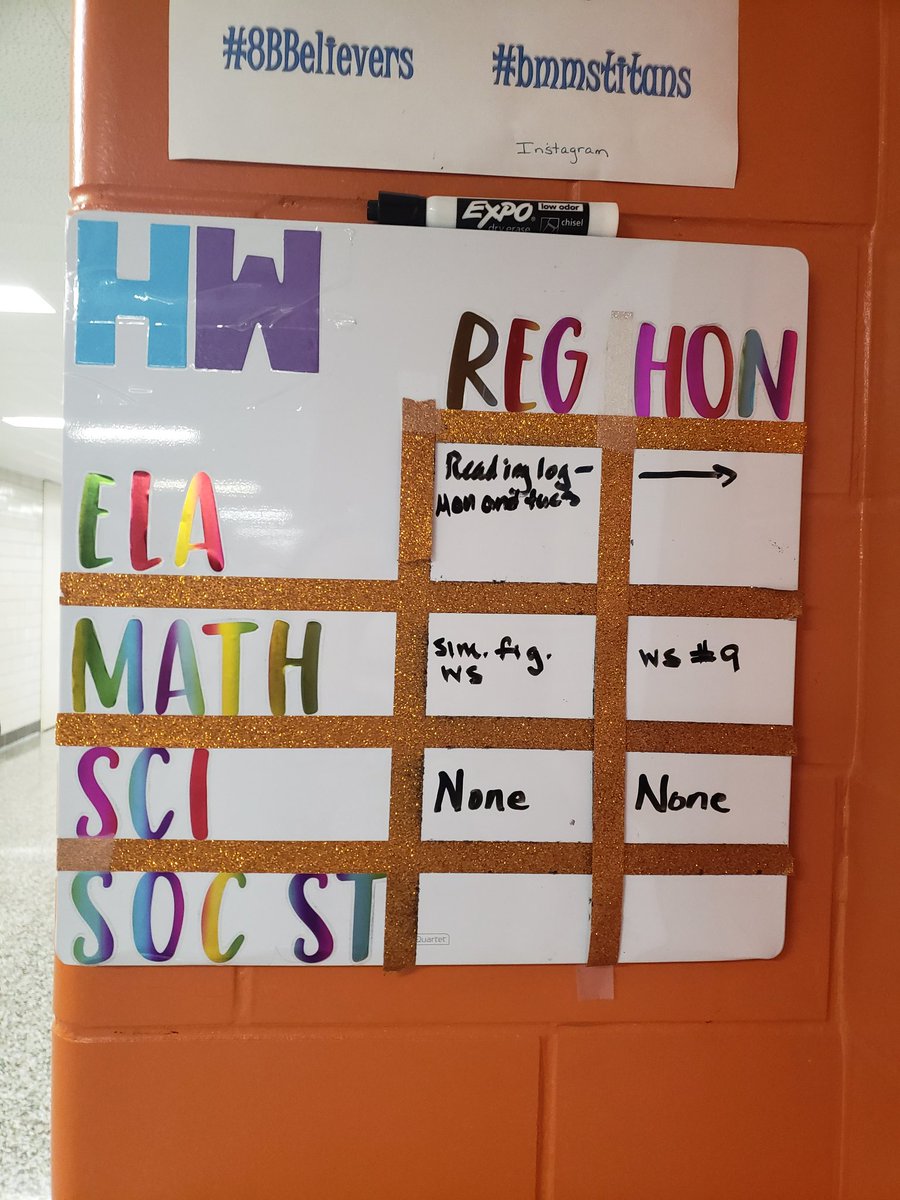 #8BBelievers #bmmstitans
Instagram
EXPO low odor
dry erase chisel
HW
REG HON
ELA
Reading log-
Mon and tues
MATH
sim. fig.
WS
WS #9
SCI
None
None
SOC ST
Quartet